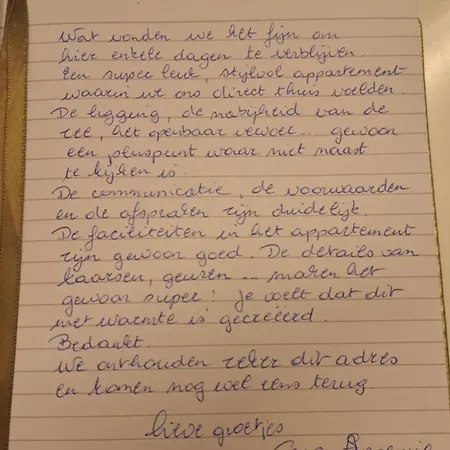 Wat vonden we het fijn om
hier enkele dagen te verblijven.
Een super leuk, stijlvol appartement
waarin we ons direct thuis voelden.
De ligging, de nabijheid van de
zee, het openbaar vervoer... gewoon
een pluspunt waar niet naast
te kijken is.
De communicatie, de voorwaarden
en de afspraken zijn duidelijk.
De faciliteiten in het appartement
zijn gewoon goed. De details van
kaarsen, geuren ... maken het
gewoon super! Je voelt dat dit
met warmte is gecreëerd.
Bedankt.
We onthouden zeker dit adres
en komen nog wel eens terug
lieve groetjes